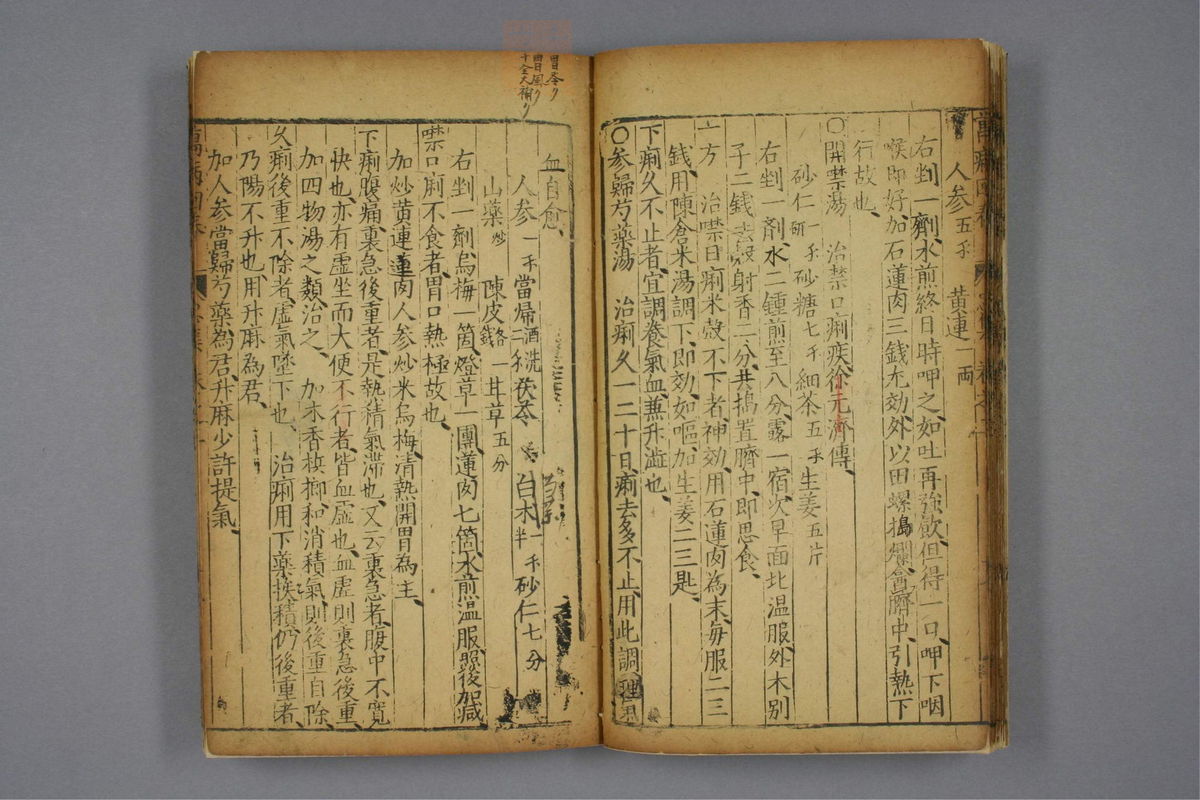 人参 五𠆤 黄連 一両
右剉一劑、水煎終日時呷之、如吐再強飲、但得一口、呷下咽
喉即好、加石蓮肉三錢尤効、外以田螺搗爛盦臍中、引熱下
行故也、
○開噤湯 治禁口痢疾徐元濟傳、
砂仁 研 一𠆤 砂糖 七𠆤 細茶 五𠆤 生姜 五片
右剉一剤、水二鍾煎至八分、露一宿次早面北温服、外木別
子二錢去殻射香二分共搗置臍中、即思食、
一方 治噤口痢米穀不下者、神効、用石蓮肉為末、毎服二三
錢、用陳倉米湯調下、即効、如嘔、加生姜二三匙、
下痢久不止者、宜調養氣血、兼升澁也、
○参歸芍藥湯 治痢久一二十日、痢去多不止、用此調理
血自愈、
人参 一𠆤 當帰 酒洗 二𠆤 茯苓 白术 一𠆤半 砂仁 七分
山藥 炒 陳皮 各一錢 甘草 五分
右剉一劑、烏梅一箇、燈草一團、蓮肉七箇、水煎温服、照後加減、
噤口痢不食者、胃口熱極故也、
加炒黄連蓮肉人参炒米烏梅、清熱開胃為主、
下痢腹痛、裏急後重者、是熱積氣滯也、又云裏急者、腹中不寬
快也、亦有虚坐而大便不行者、皆血虚也、血虚則裏急後重、
加四物湯之類治之、 加木香梹榔和消積氣、則後重自除
久痢後重不除者、虚氣墜下也、 治痢用下藥挨積、仍後重者、
乃陽不升也、用升麻為君、
加人参當歸芍藥為君、升麻少許提氣、